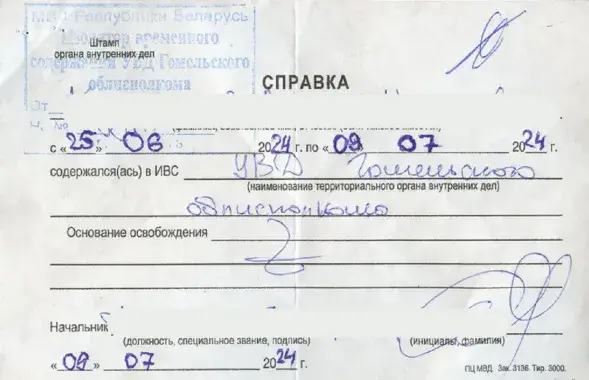 МВД Республики Беларусь
Изолятор временного
содержания УВД Гомельского
облисполкома
От
Штамп
органа внутренних дел
СПРАВКА
с «25» 06 2024 г. по «09» 07 2024 г.
содержался(ась) в ИВС УВД Гомельского
(наименование территориального органа внутренних дел)
облисполкома
Основание освобождения
Начальник
(должность, специальное звание, подпись) (инициалы, фамилия)
«09» 07 2024 г. ПЦ МВД. Зак. 3136. Тир. 3000.